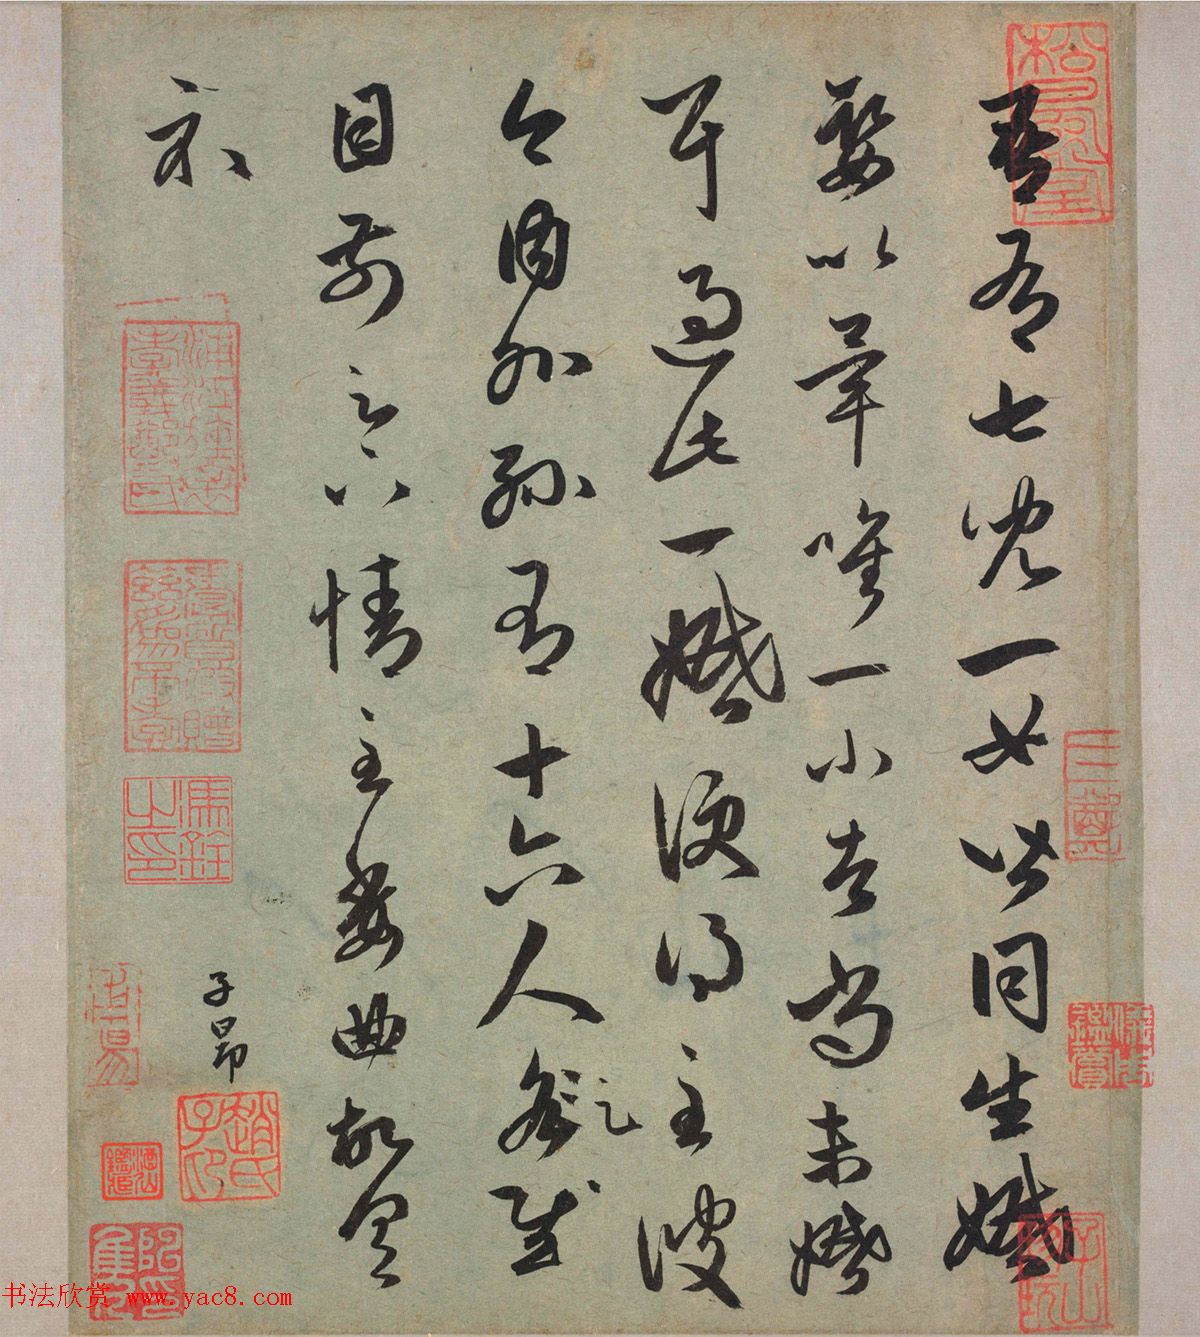 吾有七兒一女皆同生婚
娶以畢唯一小者尚未婚
耳過此一婚便得至彼
今内外孫有十六人足慰
目前足下情至委曲故具
示
子昂
趙氏子昂
馮銓之印
书法欣赏 www.yac8.com